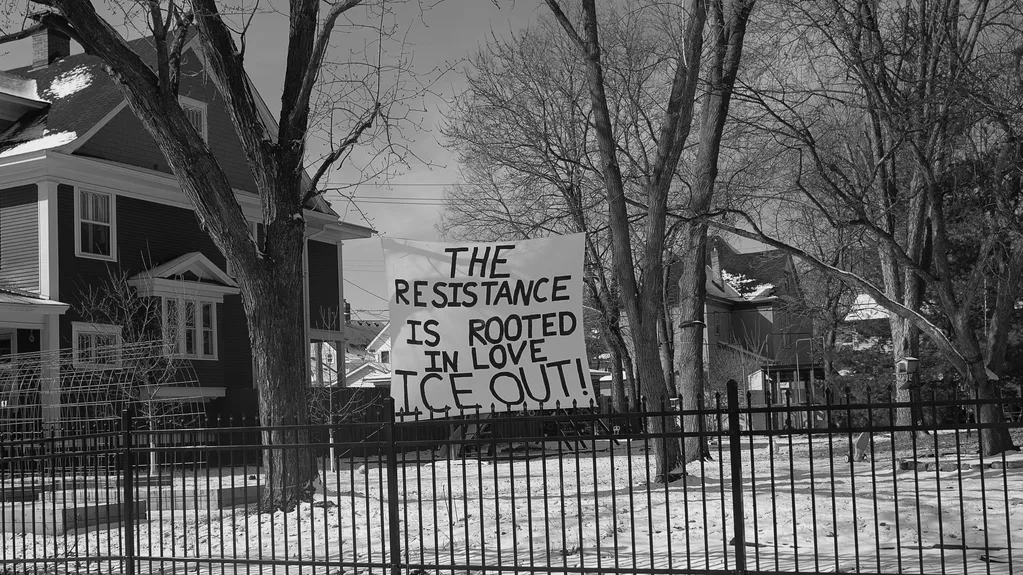 THE
RESISTANCE
IS ROOTED
IN LOVE
ICE OUT!